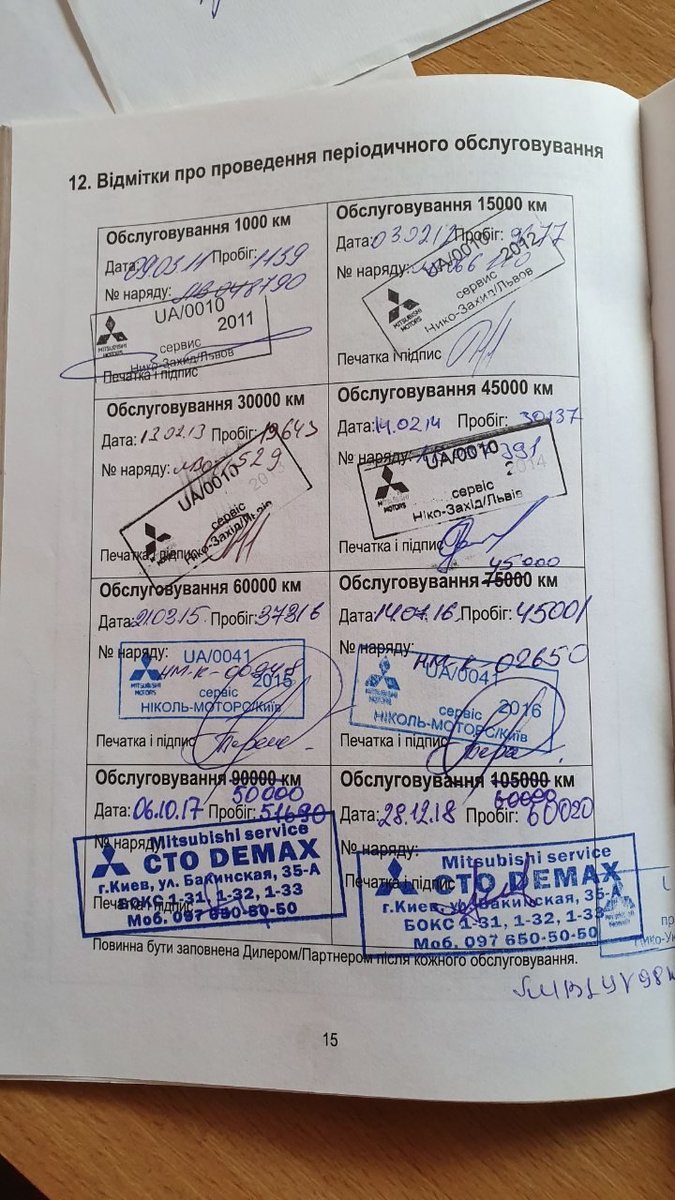 12. Відмітки про проведення періодичного обслуговування
Обслуговування 1000 км
Дата: 09.03.11 Пробіг: 1139
№ наряду:
UA/0010
2011
MITSUBISHI MOTORS
сервис
Нико-Захид/Львов
Печатка і підпис
Обслуговування 15000 км
Дата: 030212 Пробіг:
№ наряду:
UA/0010
2012
MITSUBISHI MOTORS
сервис
Нико-Захид/Львов
Печатка і підпис
Обслуговування 30000 км
Дата: 13.02.13 Пробіг: 19643
№ наряду:
UA/0010
сервіс
Ніко-Захід/Львів
Печатка і підпис
Обслуговування 45000 км
Дата: 14.02.14 Пробіг: 30137
№ наряду:
UA/0010
2014
MITSUBISHI MOTORS
сервіс
Ніко-Захід/Львів
Печатка і підпис
Обслуговування 60000 км
Дата: 210315 Пробіг: 37316
№ наряду:
UA/0041
НМ-К-00948
2015
MITSUBISHI MOTORS
сервіс
НІКОЛЬ-МОТОРС/Київ
Печатка і підпис
45000
Обслуговування 75000 км
Дата: 14.07.16 Пробіг: 45001
№ наряду:
НМ-К-02650
UA/0041
сервіс 2016
MITSUBISHI MOTORS
НІКОЛЬ-МОТОРС/Київ
Печатка і підпис
Обслуговування 90000 км
50000
Дата: 06.10.17 Пробіг: 51690
№ наряду:
Mitsubishi service
СТО DEMAX
г.Киев, ул. Бакинская, 35-А
БОКС 1-31, 1-32, 1-33
Моб. 097 650-50-50
Печатка і підпис
Обслуговування 105000 км
60000
Дата: 28.12.18 Пробіг: 60020
№ наряду:
Mitsubishi service
Печатка і підпис
СТО DEMAX
г.Киев, ул. Бакинская, 35-А
БОКС 1-31, 1-32, 1-33
Моб. 097 650-50-50
Повинна бути заповнена Дилером/Партнером після кожного обслуговування.
15